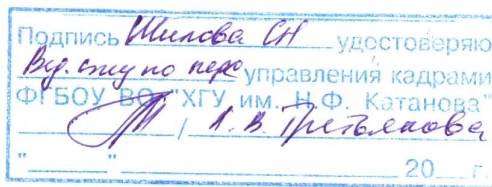 Подпись Шилова СН удостоверяю
Вед. спец по перс управления кадрами
ФГБОУ ВО "ХГУ им. Н.Ф. Катанова"
/ А. В. Третьякова
"____" 20 г.